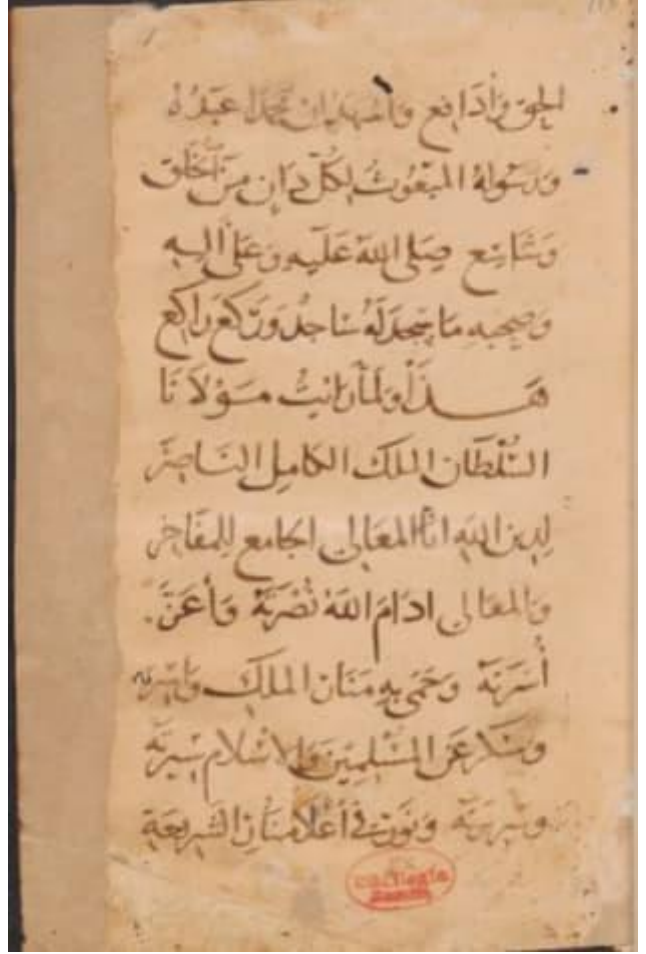 الحق وَأدَافع وَأشهد ان محمدًا عَبدُهُ
وَرَسُولهُ المَبْعُوثُ لِكُلّ دَانٍ مِنَ الخَلق
وَشَاسِع صِلى اللهُ عَلَيهِ وَعَلى الِهِ
وَصَحبِهِ مَا سَجدَ لَهُ سَاجدُ وَرَكعَ رَاكع
هَذَا وَلَمَّا رَايتُ مَوْلاَنَا
السُّلطَان الملك الكَامِل النَّاصِرَ
لِدِينِ اللهِ ابَا المعَالى الجَامع لِلمفَاخِرِ
وَالمعَالى ادَامَ اللهُ نُصْرَتَهُ وَأعَزَّ
أُسْرَتَهُ وَحَمَى بِهِ مَنَار الملك
عَن المُسْلِمِينَ وَالاسْلام
وَ فى أعْلاَ مَنَارِ الشَّرِيعَةِ